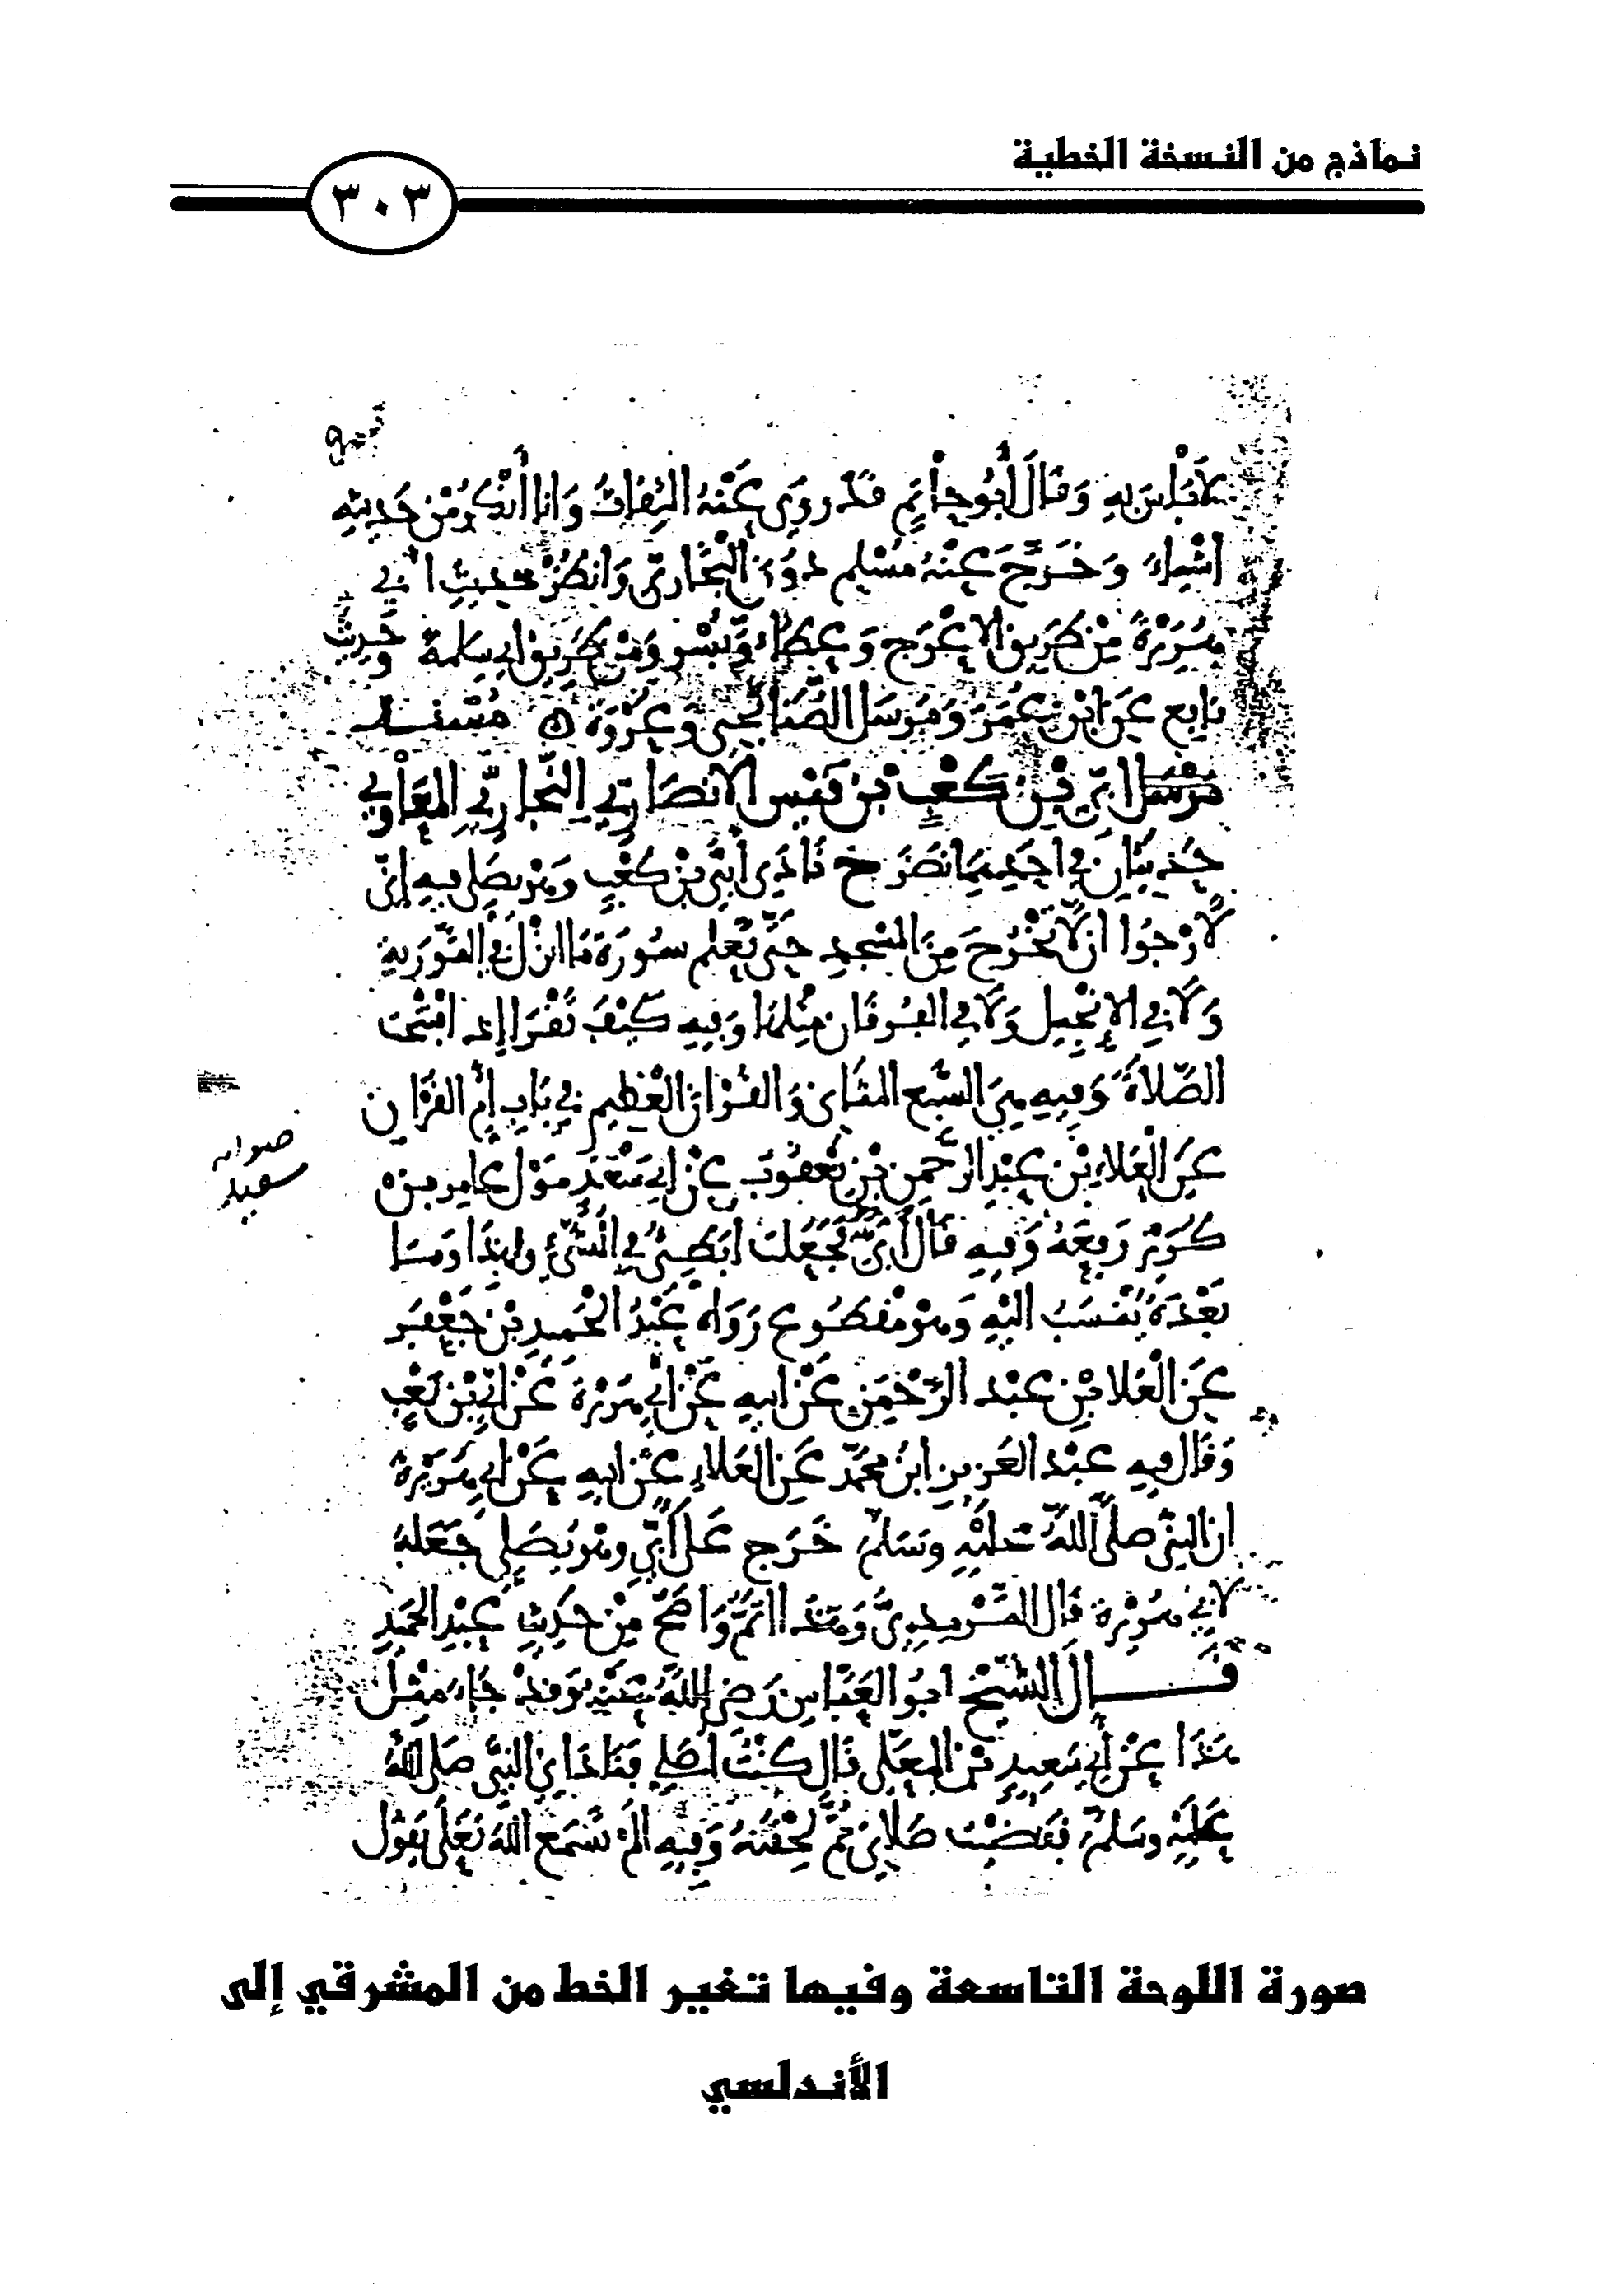 نماذج من النسخة الخطية
٣٠٣
لاباس به وقال أبو حاتم قد روى عنه الثقات وانا أنكر من حديثه
اشياء وخرج عنه مسلم دون البخاري وانظر حديث ابي
هريرة من طريق الاعرج وعطاء وبسر ومن طريق ابي سلمة وحديث
نابع عن ابن عمر ومرسل الصنابحي وعروة ه مسند
ابي بن كعب بن قيس الانصاري النجاري المعاوي
حديثان في احدهما نظر خ نادى أبي بن كعب وهو يصلي فيه إني
لارجوا ان لا تخرج من المسجد حتى تعلم سورة ما انزل في التورية
ولا في الإنجيل ولا في الفرقان مثلها وفيه كيف تقرا إذا افتتحت
الصلاة وفيه هي السبع المثاني والقرءان العظيم في باب أم القرءان
عن العلاء بن عبد الرحمن بن يعقوب عن ابي سعد مولى عامر بن
صوابه
سعيد
كريز رفعه وفيه قال أبي فجعلت ابطئ في المشي ولهذا وما
بعده ينسب اليه وهو مقطوع رواه عبد الحميد بن جعفر
عن العلا بن عبد الرحمن عن ابيه عن أبي هريرة عن ابي بن كعب
وقال فيه عبد العزيز ابن محمد عن العلاء عن ابيه عن ابي هريرة
ان النبي صلى الله عليه وسلم خرج على أبي وهو يصلي فجعله
لابي هريرة قال الترمذي وهذا اتم واصح من حديث عبد الحميد
قال الشيخ ابو العباس رضي الله عنه وقد جاء مثل
هذا عن أبي سعيد بن المعلى قال كنت أصلي فناداني النبي صلى الله
عليه وسلم فقضيت صلاتي ثم لحقته وفيه الم تسمع الله تعلى يقول
صورة اللوحة التاسعة وفيها تغير الخط من المشرقي إلى
الأندلسي